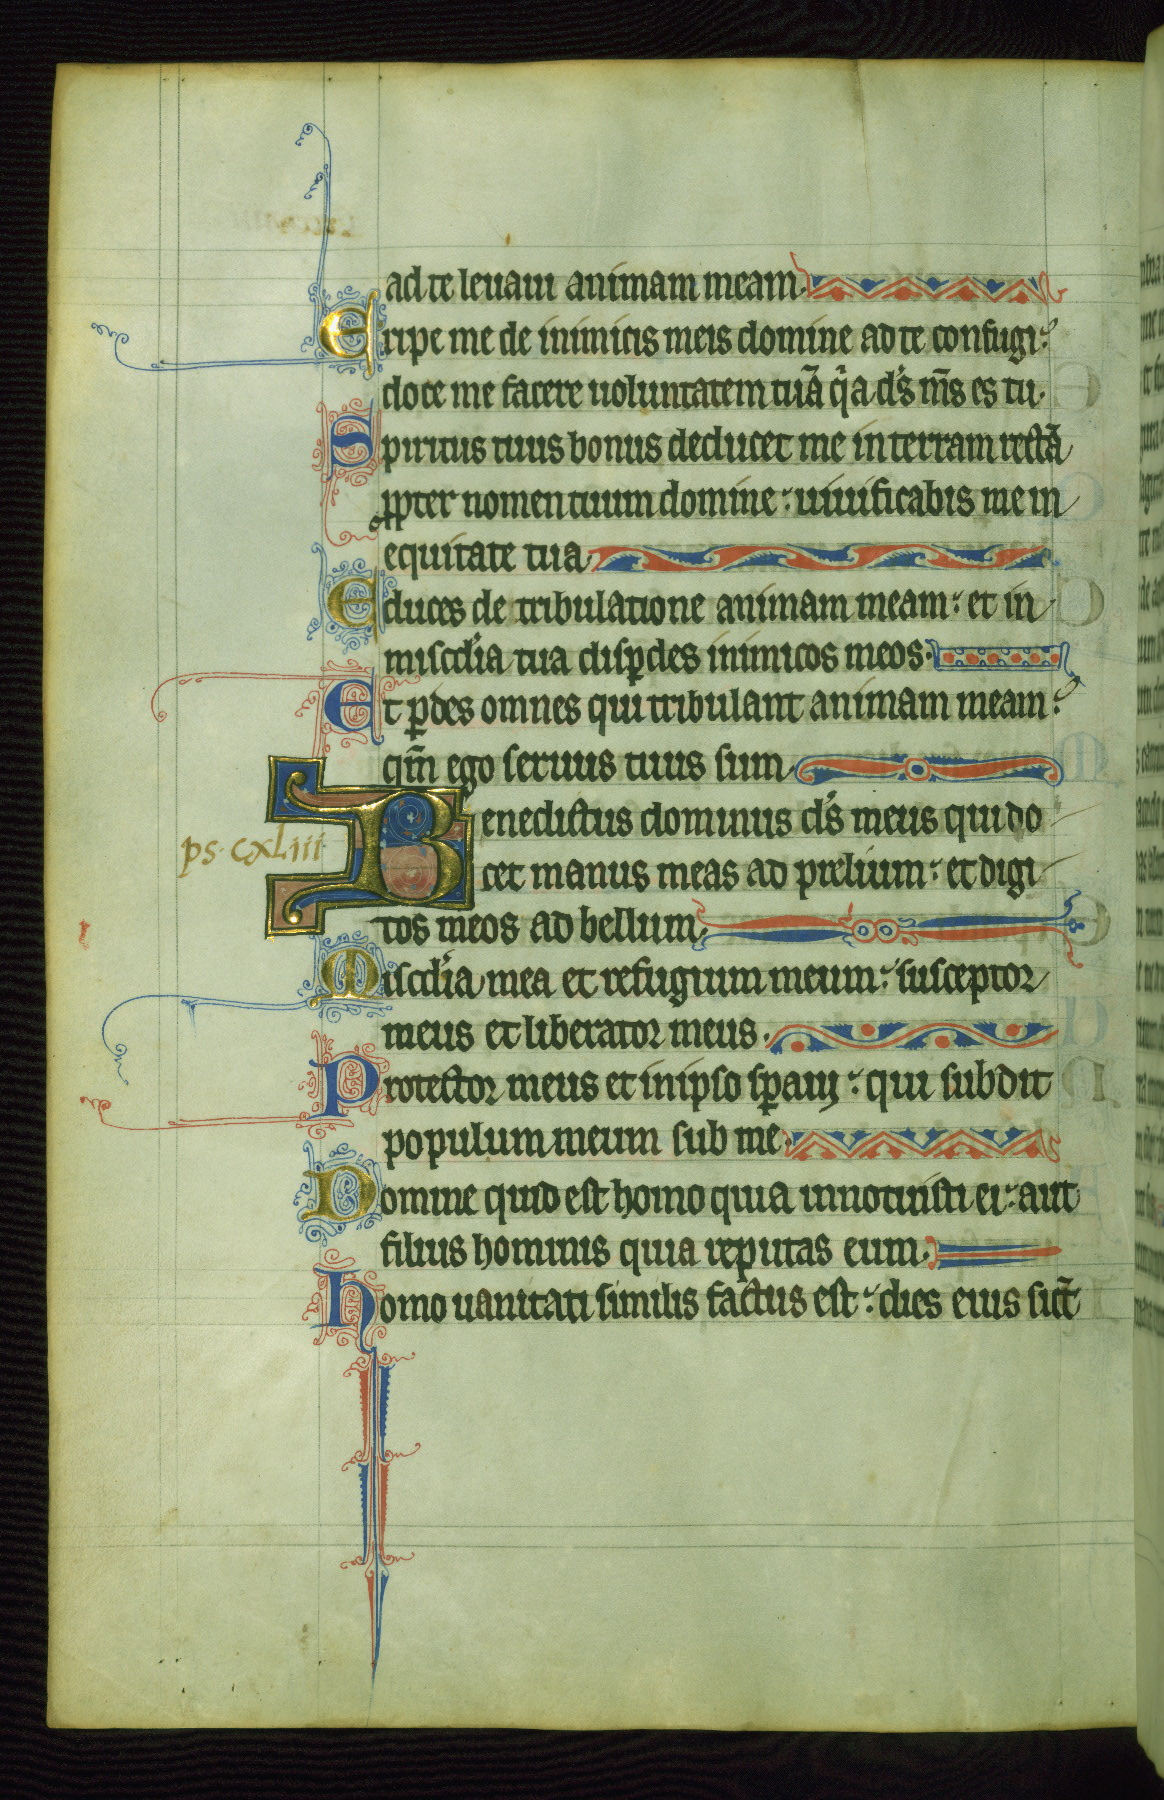 ad te leuaui animam meam.
Eripe me de inimicis meis domine ad te confugi:
doce me facere uoluntatem tuā q̄a ds̄ ms̄ es tu.
Spiritus tuus bonus deducet me in terram rectā
ꝓpter nomen tuum domine: uiuificabis me in
equitate tua.
Educes de tribulatione animam meam: et in
misc̄dia tua disꝑdes inimicos meos.
Et ꝑdes omnes qui tribulant animam meam:
qm̄ ego seruus tuus sum.
Benedictus dominus ds̄ meus qui do
ps. cxliii
cet manus meas ad prelium: et digi
tos meos ad bellum.
Misc̄dia mea et refugium meum: susceptor
meus et liberator meus.
Protector meus et in ipso sꝑaui: qui subdit
populum meum sub me.
Domine quid est homo quia innotuisti ei: aut
filius hominis quia reputas eum.
Homo uanitati similis factus est: dies eius sicut̄